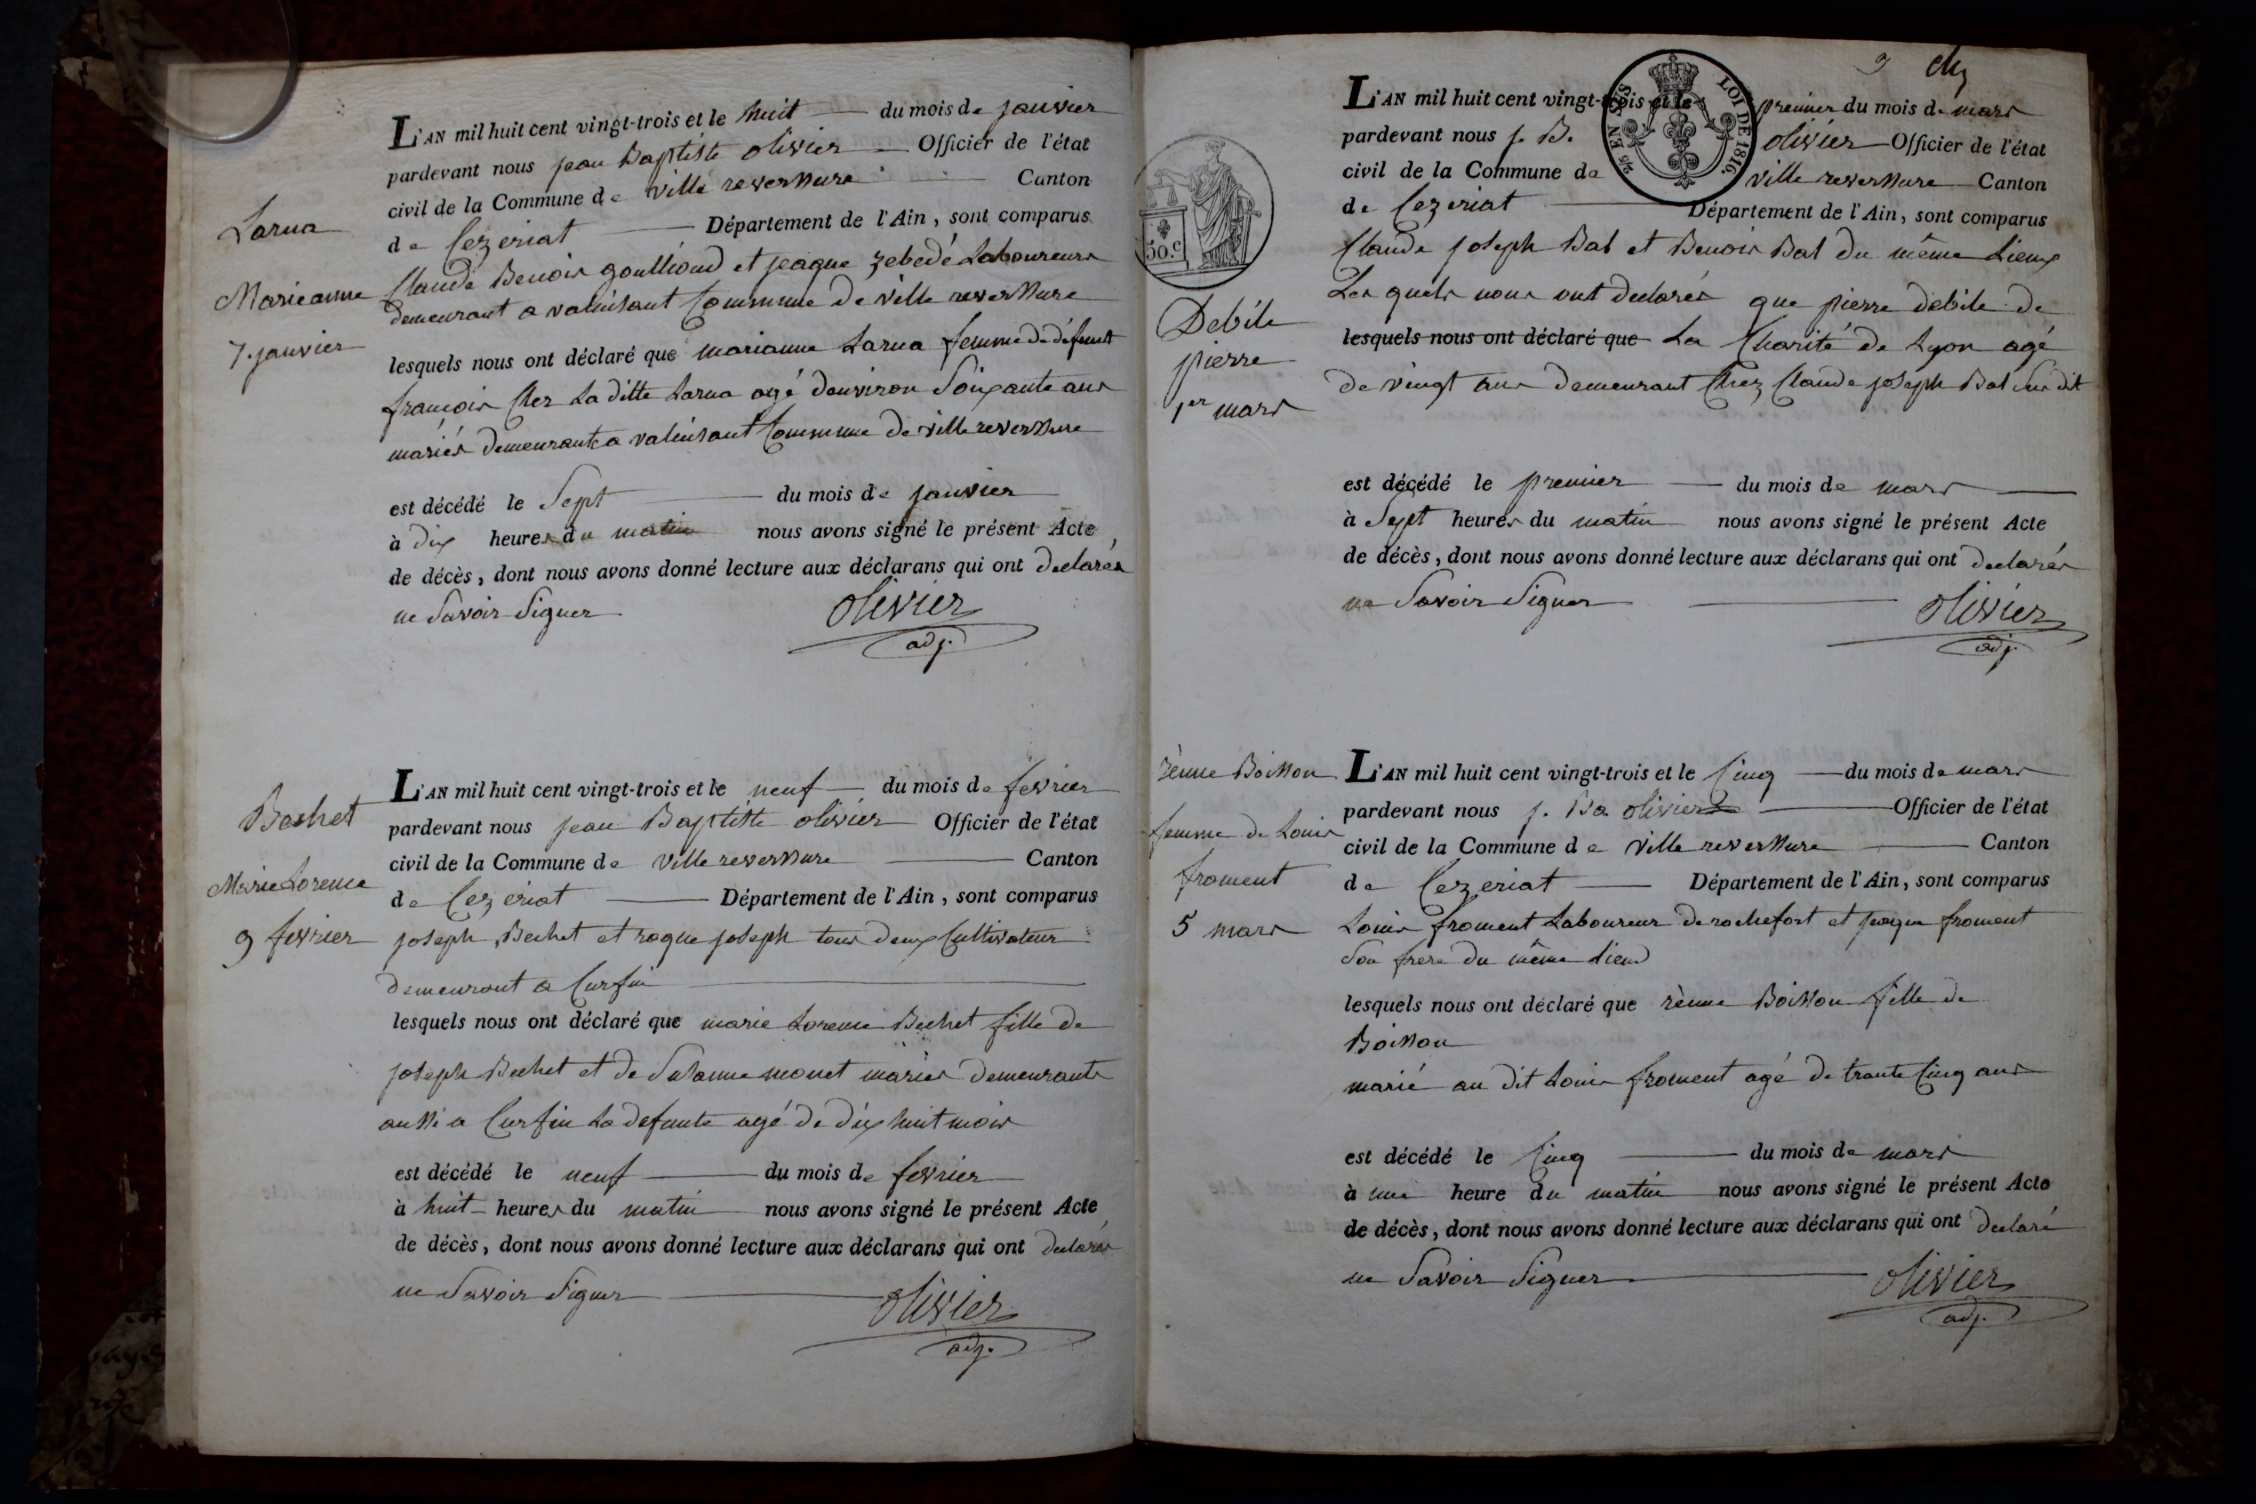 Larua
Marieanne
7. janvier
L'AN mil huit cent vingt-trois et le huit du mois de janvier
pardevant nous jean Baptiste olivier Officier de l'état
civil de la Commune de ville reversure Canton
de Cezeriat Département de l'Ain, sont comparus
Claude Benois goullioud et jeaque zebedé Laboureurs
demeurant a valuisant Commune de ville reversure
lesquels nous ont déclaré que marianne Larua femme de défeunt
francois Cler La ditte Larua agé denviron Soixante ans
mariés demeurants a valuisant Commune de ville reversure
est décédé le Sept du mois de janvier
à dix heures du matin nous avons signé le présent Acte
de décès, dont nous avons donné lecture aux déclarans qui ont declarés
ne Savoir Signer
olivier
adj.
Bechet
Marie Lorence
9 fevrier
L'AN mil huit cent vingt-trois et le neuf du mois de fevrier
pardevant nous jean Baptiste olivier Officier de l'état
civil de la Commune de ville reversure Canton
de Cezeriat Département de l'Ain, sont comparus
joseph Bechet et roque joseph tous deux Cultivateur
demeuront a Curfin
lesquels nous ont déclaré que marie Lorence Bechet fille de
joseph Bechet et de Susanne monet mariés demeurants
aussi a Curfin La defunte agé de dix huit mois
est décédé le neuf du mois de fevrier
à huit heures du matin nous avons signé le présent Acte
de décès, dont nous avons donné lecture aux déclarans qui ont declarés
ne Savoir Signer
olivier
adj.
LOI DE 1816.
50.c
Debile
pierre
1er mars
L'AN mil huit cent vingt-trois et le premier du mois de mars
pardevant nous j. B. olivier Officier de l'état
civil de la Commune de ville reversure Canton
de Cezeriat Département de l'Ain, sont comparus
Claude joseph Bal et Benois Bal du même Lieux
Les quels nous ont declarés que pierre debile de
lesquels nous ont déclaré que La Charité de Lyon agé
de vingt ans demeurant Chez Claude joseph Bal Sus dit
est décédé le premier du mois de mars
à Sept heures du matin nous avons signé le présent Acte
de décès, dont nous avons donné lecture aux déclarans qui ont declarés
ne Savoir Signer
olivier
adj.
rènne Boisson
femme de Louis
froment
5 mars
L'AN mil huit cent vingt-trois et le Cinq du mois de mars
pardevant nous j. Ba olivier Officier de l'état
civil de la Commune de ville reversure Canton
de Cezeriat Département de l'Ain, sont comparus
Louis froment Laboureur de rochefort et jeaque froment
Son frere du même Lieu
lesquels nous ont déclaré que rènne Boisson fille de
Boisson
marié au dit Louis froment agé de trante Cinq ans
est décédé le Cinq du mois de mars
à une heure du matin nous avons signé le présent Acte
de décès, dont nous avons donné lecture aux déclarans qui ont declaré
ne Savoir Signer
olivier
adj.